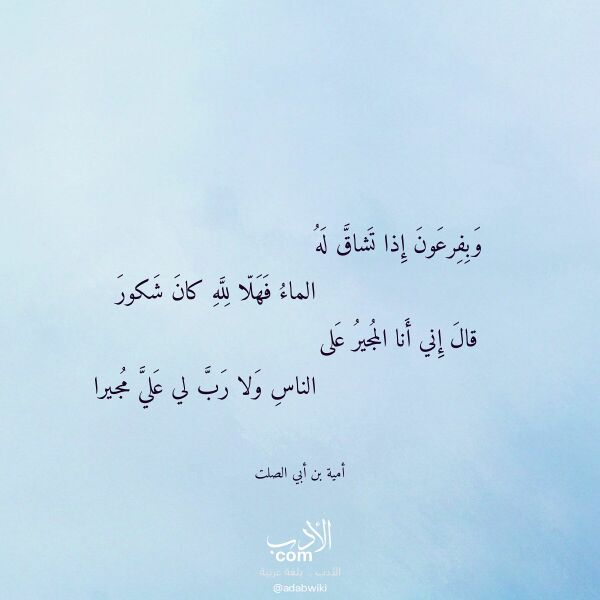 وَبِفِرعَونَ إِذا تَشاقَّ لَهُ
الماءُ فَهَلّا لِلَّهِ كانَ شَكورَ
قالَ إِني أَنا المُجيرُ عَلى
الناسِ وَلا رَبَّ لي عَلَيَّ مُجيرا
أمية بن أبي الصلت
الأدب
com
الأدب .. بلغة عربية
@adabwiki